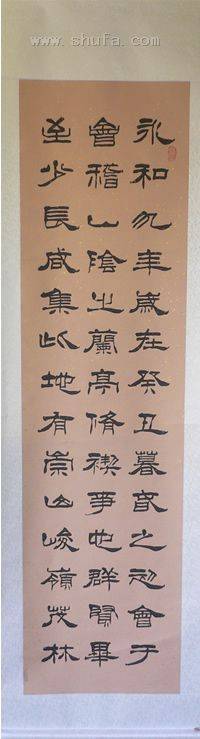 书法 www.shufa.com
永和九年歲在癸丑暮春之初會于
會稽山陰之蘭亭脩禊事也群賢畢
至少長咸集此地有崇山峻嶺茂林